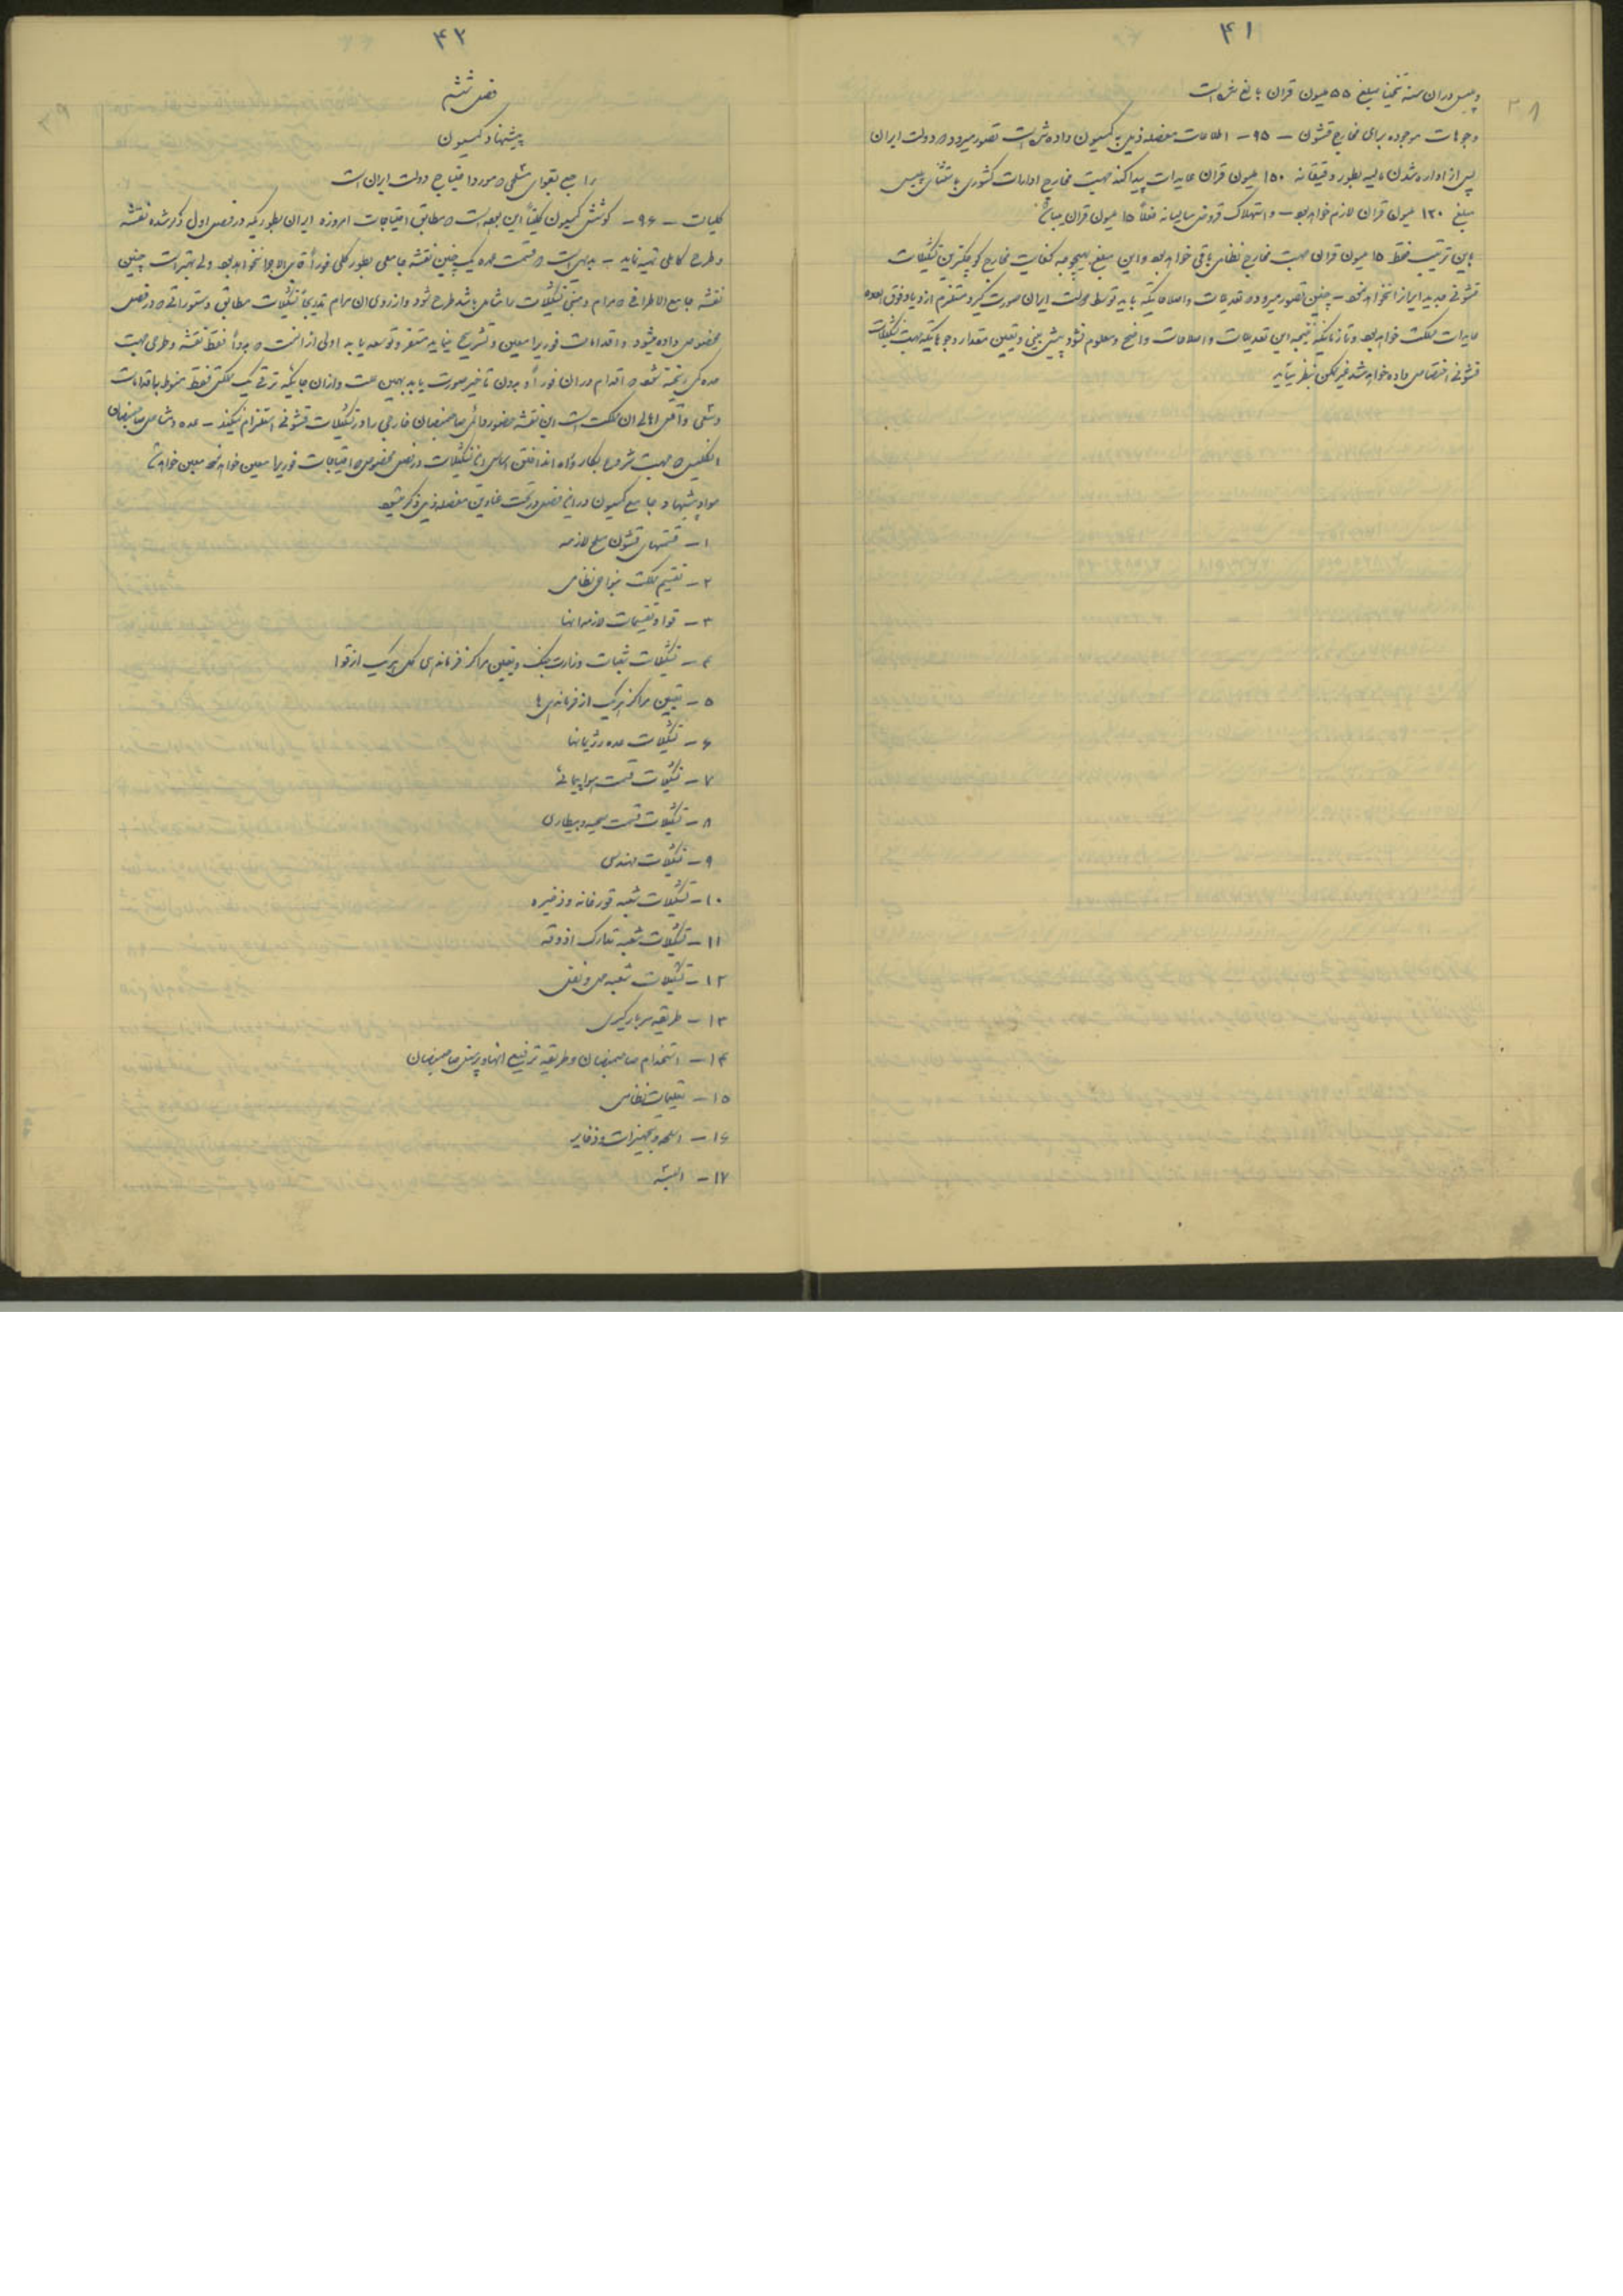 ۴۱
۳۸
و پلیس در ان سنه تخمیناً مبلغ ۵۵ میلیون قران بالغ شده است
وجوهات موجوده برای مخارج قشون – ۹۵ – اطلاعات مفصله ذیل به کمیسیون داده شده است تصور میرود که دولت ایران
پس از اداره شدن مالیه بطور دقیقانه ۱۵۰ میلیون قران عایدات پیدا کند جهت مخارج ادارات کشوری باستثنای پلیس
مبلغ ۱۲۰ میلیون قران لازم خواهد بود – و استهلاک قروض سالیانه فعلاً ۱۵ میلیون قران میباشد
باین ترتیب فقط ۱۵ میلیون قران جهت مخارج نظامی باقی خواهد بود و این مبلغ بهیچوجه کفایت مخارج کوچکترین تشکیلات
قشونی جدید ایران را نخواهد نمود – چنین تصور میرود که تعدیلات و اصلاحاتیکه باید توسط دولت ایران صورت گیرد مستلزم ازدیاد فوق العاده
عایدات مملکت خواهد بود و تا زمانیکه نتیجه این تعدیلات و اصلاحات واضح و معلوم نشود پیش بینی و تعیین مقدار وجوهاتیکه جهت تشکیلات
قشونی اختصاص داده خواهد شد غیر ممکن بنظر میآید
۴۲
۳۹
فصل ششم
پیشنهاد کمیسیون
راجع بقوای متشکلی که مورد احتیاج دولت ایران است
کلیات – ۹۶ – کوشش کمیسیون کلیتاً این بوده است که مطابق احتیاجات امروزه ایران بطوریکه در فصل اول ذکر شده نقشه
و طرح کاملی تهیه نماید – بدیهی است که قسمت عمده یک چنین نقشه جامعی بطور کلی فوراً قابل الاجرا نخواهد بود ولی بهتر است چنین
نقشه جامع الاطرافی که مرام و مبنی تشکیلات را شامل باشد طرح شود و از روی ان مرام تدریجاً تشکیلات مطابق دستوراتی که در فصل
مخصوص داده میشود و اقدامات فوری را معین و تشریح مینماید مستقر و توسعه یابد اولی از انست که بدواً فقط نقشه و طرحی جهت
عده کمی ریخته شود که اقدام در ان فوراً و بدون تاخیر صورت یابد بهمین علت و از ان جائیکه ترقی یک مملکتی فقط منوط باقدامات
و سعی و عقل اهالی ان مملکت است این نقشه حضور دائمی صاحبمنصبان خارجی را در تشکیلات قشونی استلزام نمیکند – عده و مشاغل صاحبمنصبان
انگلیسی که جهت شروع بکار و راه انداختن اساس این تشکیلات در فصل مخصوص که احتیاجات فوری را معین خواهد نمود معین خواهد شد
مواد پیشنهاد جامع کمیسیون در این فصل در تحت عناوین مفصله ذیل ذکر میشود
۱ – قسمتهای قشون مسلح لازمه
۲ – تقسیم مملکت بنواحی نظامی
۳ – قوا و تقسیمات لازمه انها
۴ – تشکیلات شعبات وزارت جنگ و تعیین مراکز فرماندهی کل هریک از قوا
۵ – تعیین مراکز هریک از فرماندهی ها
۶ – تشکیلات عده رژیمانها
۷ – تشکیلات قسمت هواپیمائی
۸ – تشکیلات قسمت صحیه و بیطاری
۹ – تشکیلات مهندسی
۱۰ – تشکیلات شعبه قورخانه و ذخیره
۱۱ – تشکیلات شعبه تدارک اذوقه
۱۲ – تشکیلات شعبه حمل و نقل
۱۳ – طریقه سربازگیری
۱۴ – استخدام صاحبمنصبان و طریقه ترفیع انها و پرسنل صاحبمنصبان
۱۵ – تعلیمات نظامی
۱۶ – اسلحه و تجهیزات و ذخایر
۱۷ – البسه